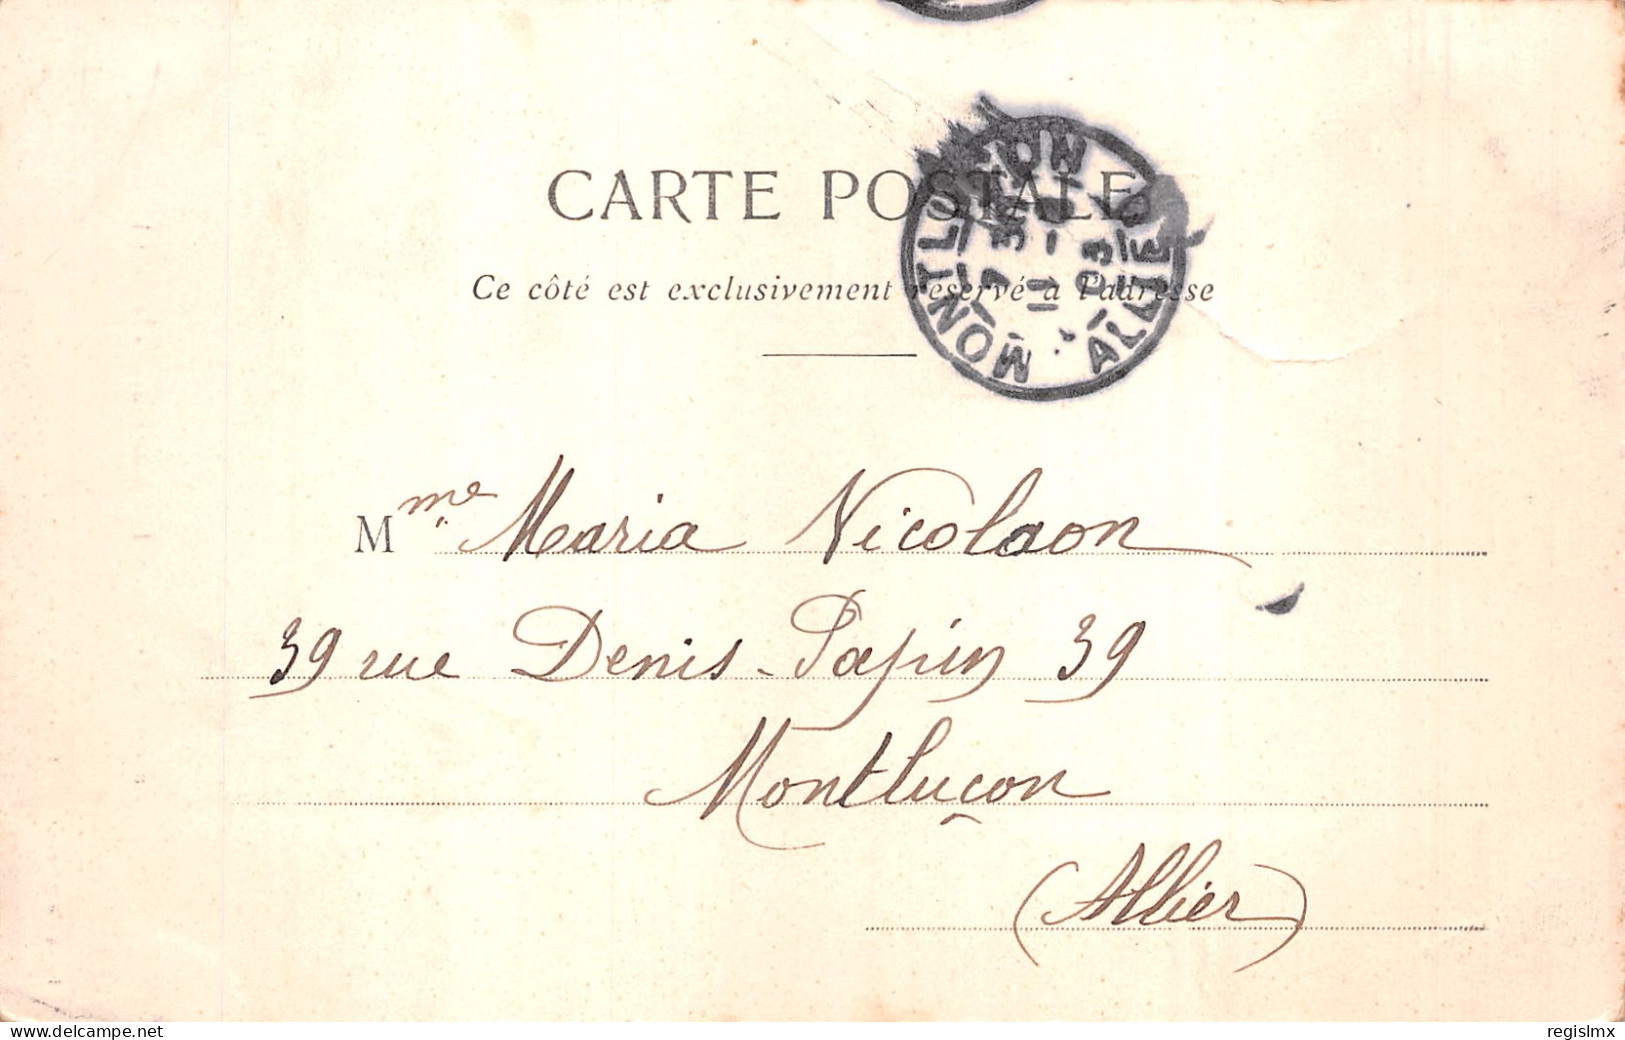 CARTE POSTALE
Ce côté est exclusivement réservé à l'adresse
MONTLUÇON
ALLIER
11 - 03
Mme Maria Nicolaon
39 rue Denis-Papin 39
Montluçon
(Allier)
www.delcampe.net
regislmx